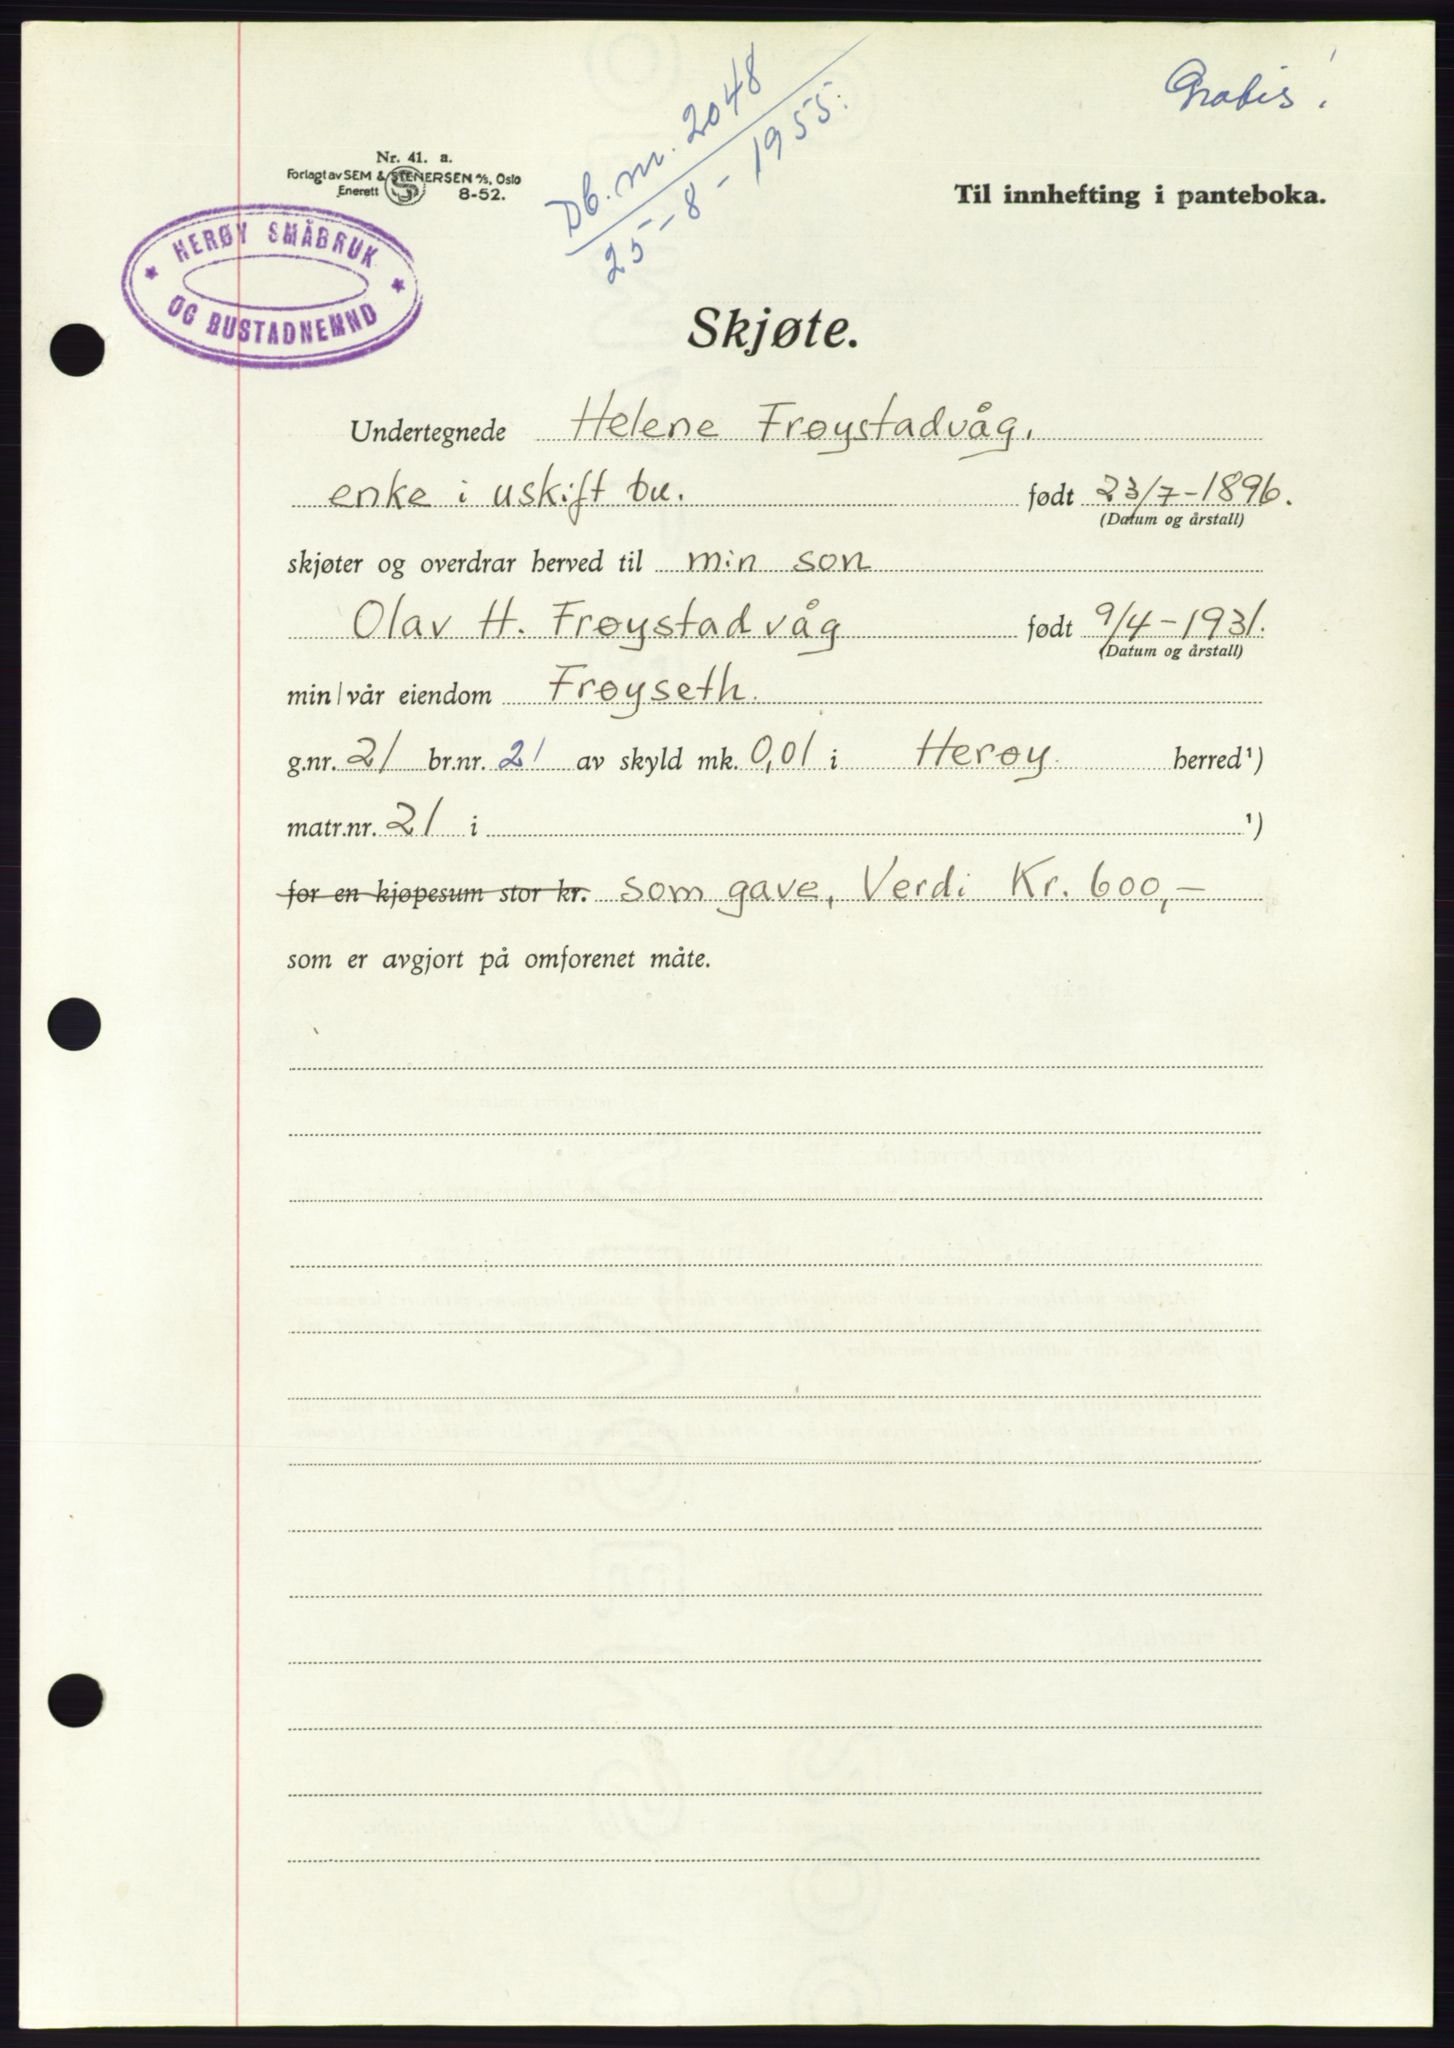 Gratis!
Db. nr. 2048
25-8-1955.
Nr. 41. a.
Forlagt av SEM & STENERSEN A/S, Oslo
Enerett 8-52.
Til innhefting i panteboka.
HERØY SMÅBRUK
OG BUSTADNEMND
Skjøte.
Undertegnede Helene Frøystadvåg,
enke i uskift bu. født 23/7-1896.
(Datum og årstall)
skjøter og overdrar herved til min son
Olav H. Frøystadvåg født 9/4-1931.
(Datum og årstall)
min/vår eiendom Frøyseth.
g.nr. 21 br.nr. 21 av skyld mk. 0,01 i Herøy herred¹)
matr.nr. 21 i ¹)
for en kjøpesum stor kr. som gave, Verdi Kr. 600,-
som er avgjort på omforenet måte.